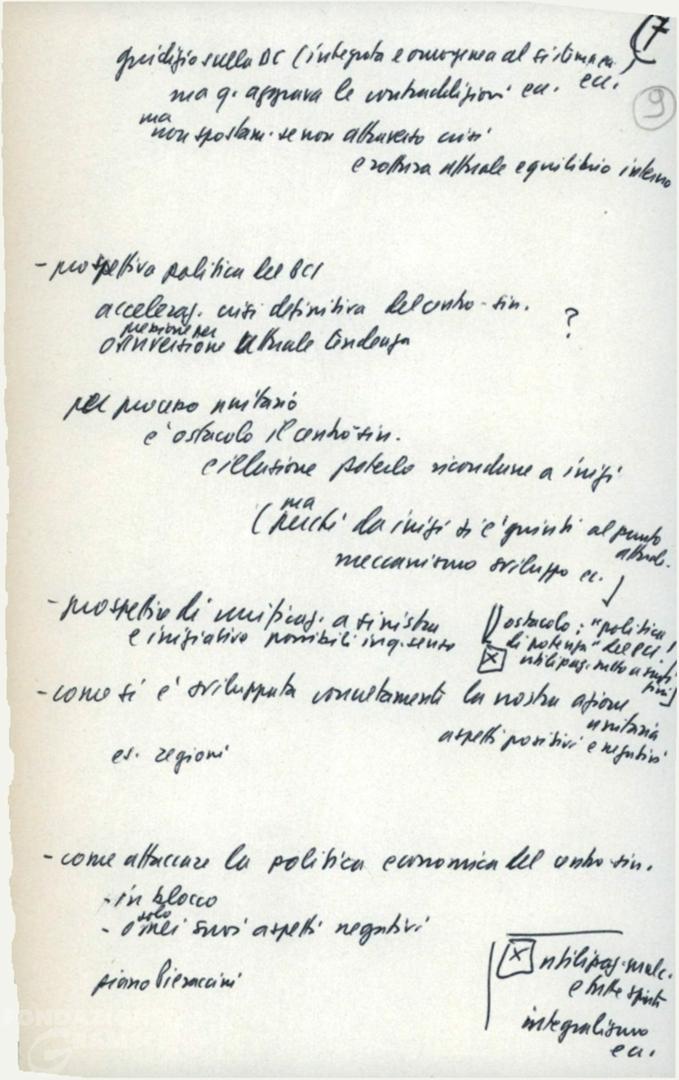 7
9
giudizio sulla DC (integrata e omogenea al sistema ecc.)
ma q. aggrava le contraddizioni ecc. ecc.
ma
non spostam. se non attraverso crisi
e rottura attuale equilibrio interno
- prospettiva politica del PCI
acceleraz. crisi definitiva del centro-sin.
?
pressione per
o inversione attuale tendenza
per processo unitario
è ostacolo il centro-sin.
e illusione poterlo ricondurre a inizi
ma
(perché da inizi si è giunti al punto
attuale.
meccanismo sviluppo ec.)
- prospettiva di unificaz. a sinistra
e iniziative possibili in q. senso
ostacolo: "politica
di potenza" del PCI!
X utilizzaz.
- come si è sviluppata concretamente la nostra azione
unitaria
aspetti positivi e negativi
es. regioni
- come attaccare la politica economica del centro-sin.
- in blocco
solo
- o nei suoi aspetti negativi
piano Pieraccini
X utilizzaz.
e tutte spinte
integralismo
ec.
FONDAZIONE